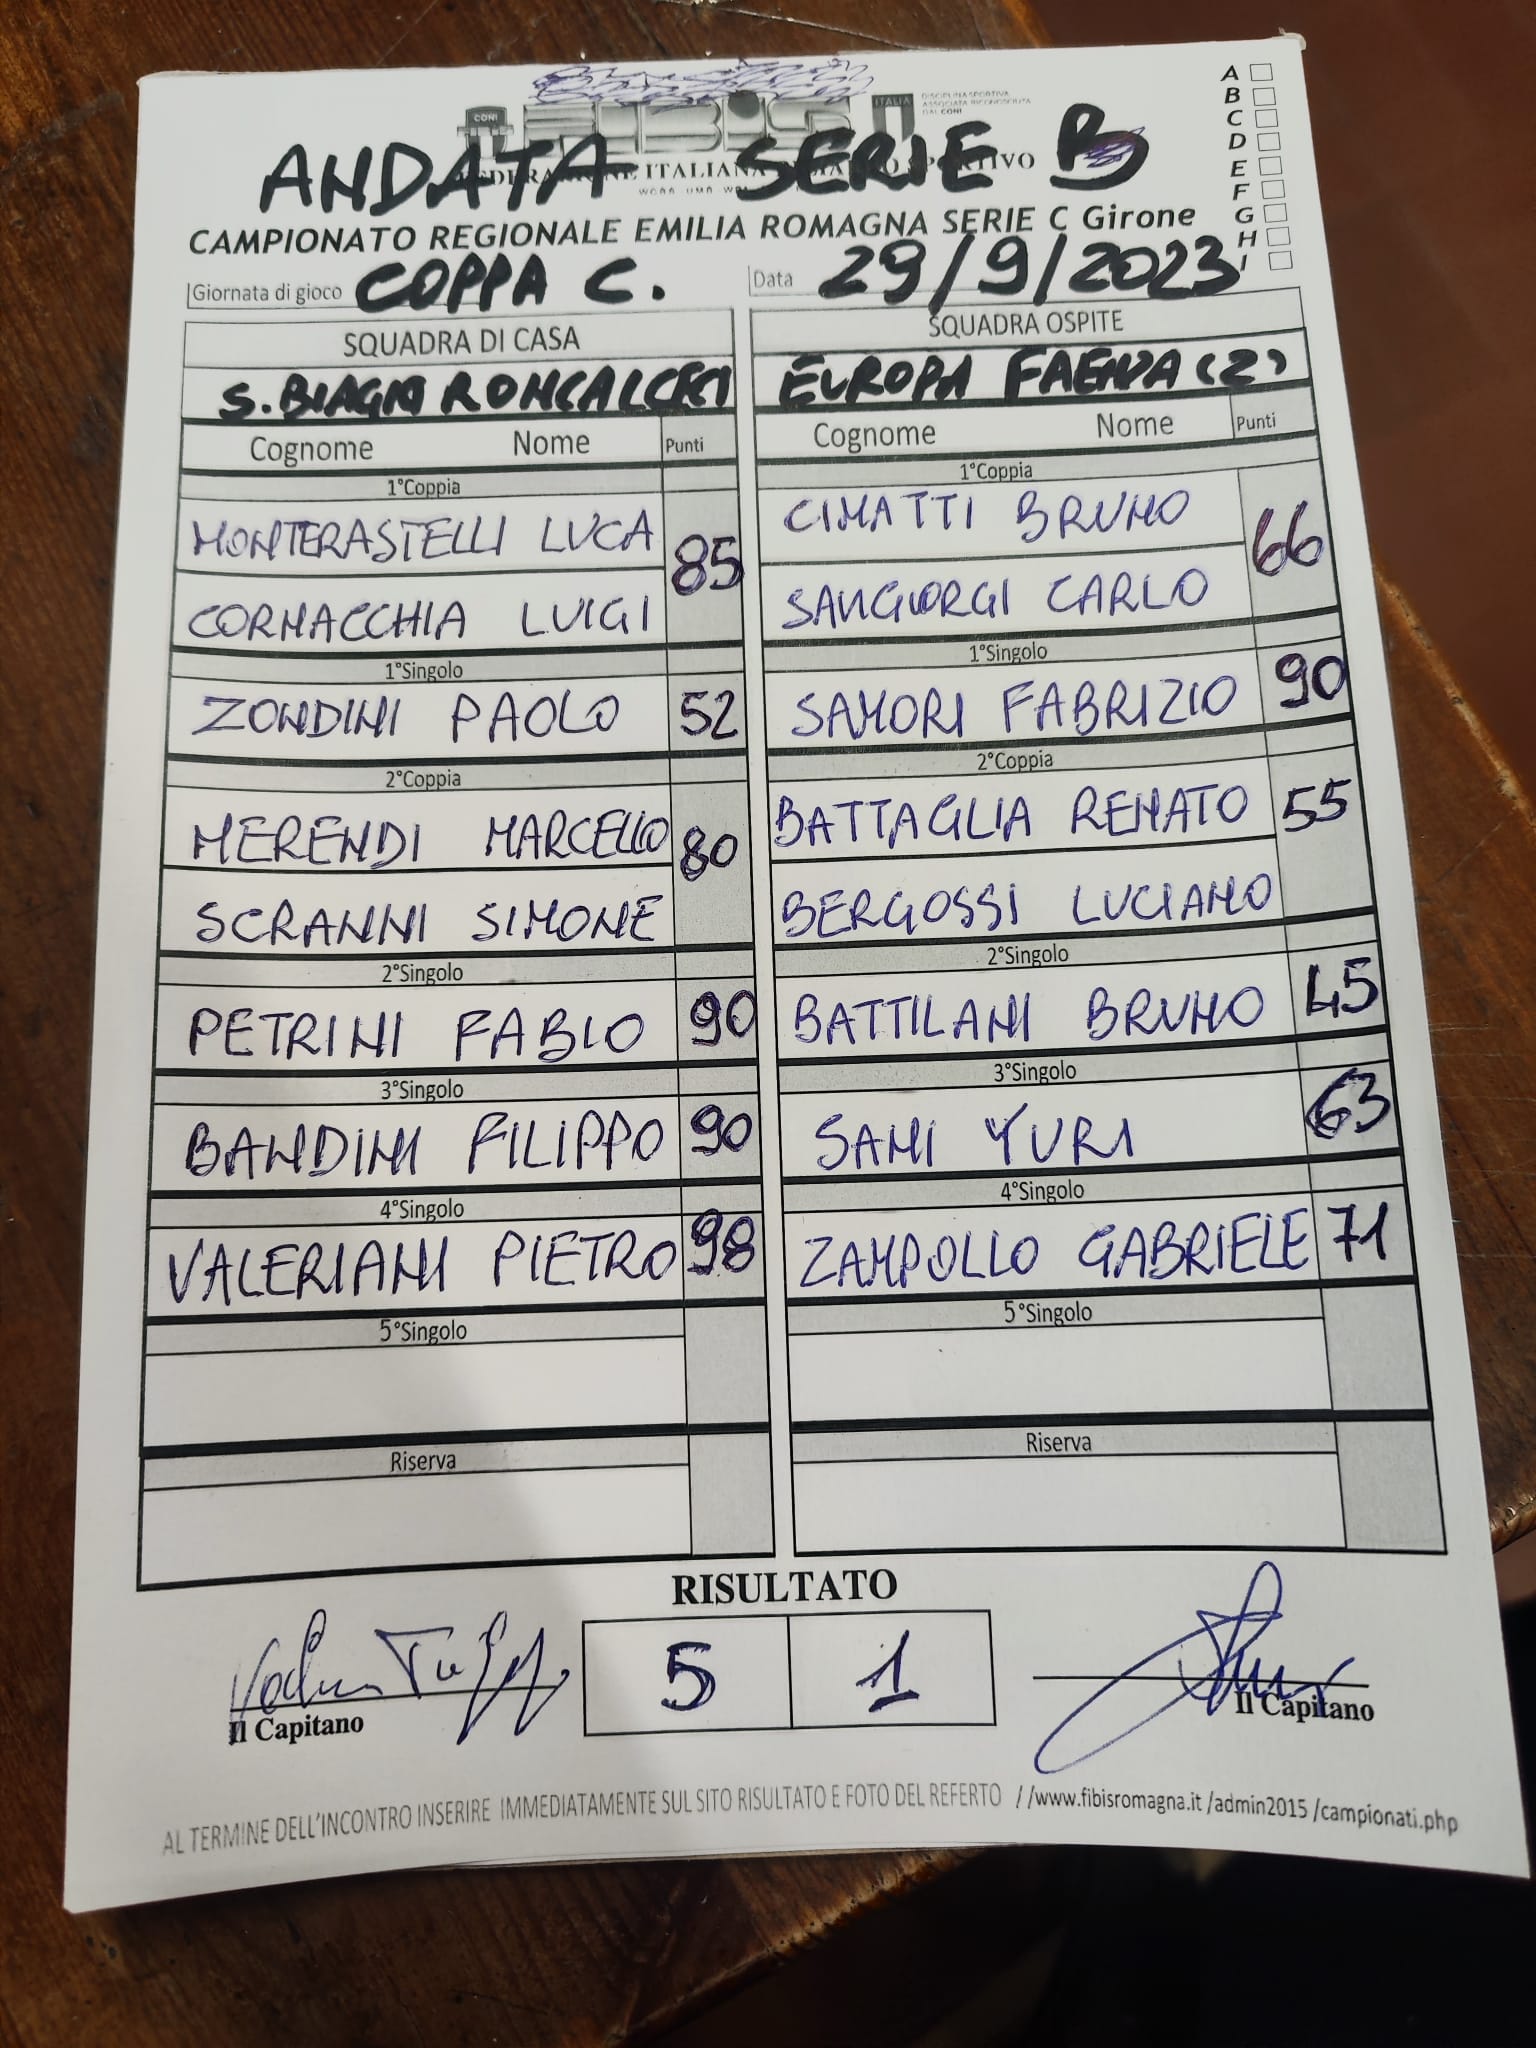 CONI
FIBiS
ITALIA
DISCIPLINA SPORTIVA
ASSOCIATA RICONOSCIUTA
DAL CONI
ANDATA SERIE B
ITALIANA
CAMPIONATO REGIONALE EMILIA ROMAGNA SERIE C Girone
A
B
C
D
E
F
G
H
I
Giornata di gioco COPPA C.
Data 29/9/2023
SQUADRA DI CASA
S. BIAGIO RONCALCECI
Cognome Nome Punti
1°Coppia
MONTERASTELLI LUCA
85
CORNACCHIA LUIGI
1°Singolo
ZONDINI PAOLO 52
2°Coppia
MERENDI MARCELLO
80
SCRANNI SIMONE
2°Singolo
PETRINI FABIO 90
3°Singolo
BANDINI FILIPPO 90
4°Singolo
VALERIANI PIETRO 98
5°Singolo
Riserva
SQUADRA OSPITE
EUROPA FAENZA (2)
Cognome Nome Punti
1°Coppia
CIMATTI BRUNO
66
SANGIORGI CARLO
1°Singolo
SAMORI FABRIZIO 90
2°Coppia
BATTAGLIA RENATO
55
BERGOSSI LUCIANO
2°Singolo
BATTILANI BRUNO 45
3°Singolo
SAMI YURI 63
4°Singolo
ZAMPOLLO GABRIELE 71
5°Singolo
Riserva
RISULTATO
5 1
Il Capitano
Il Capitano
AL TERMINE DELL'INCONTRO INSERIRE IMMEDIATAMENTE SUL SITO RISULTATO E FOTO DEL REFERTO //www.fibisromagna.it /admin2015 /campionati.php